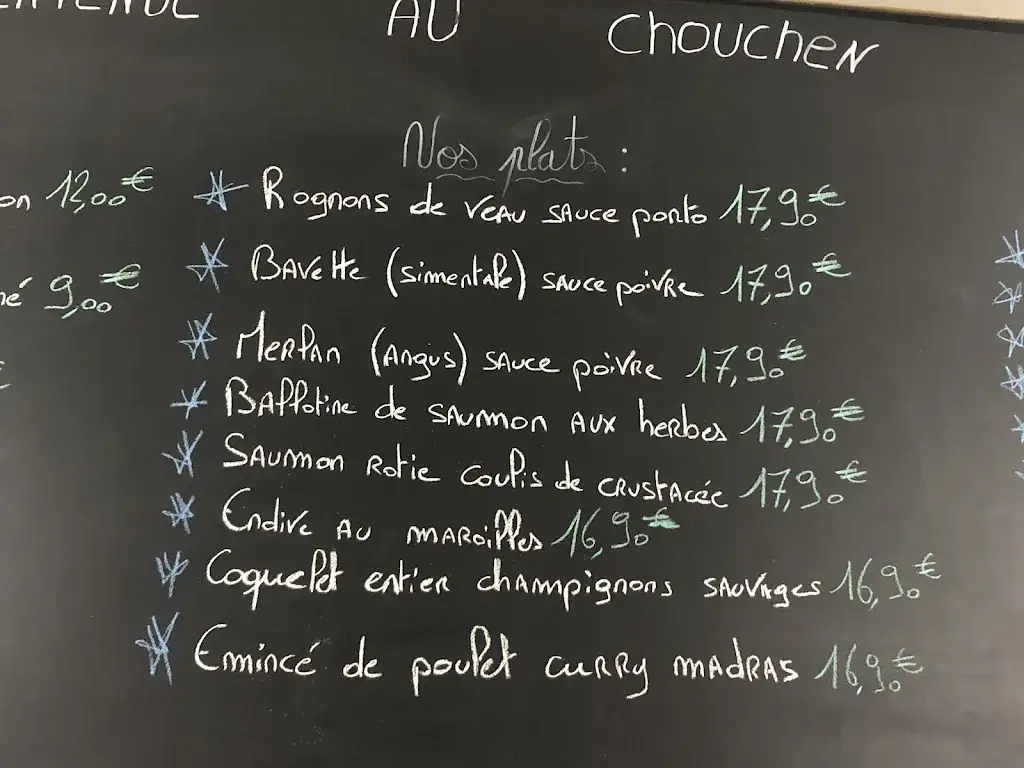 AU CHOUCHEN
Nos plats :
12,00€
Rognons de veau sauce porto 17,90€
Bavette (simentale) sauce poivre 17,90€
9,00€
Merlan (Angus) sauce poivre 17,90€
Ballotine de saumon aux herbes 17,90€
Saumon rotie coulis de crustacée 17,90€
Endive au maroilles 16,90€
Coquelet entier champignons sauvages 16,90€
Emincé de poulet curry madras 16,90€